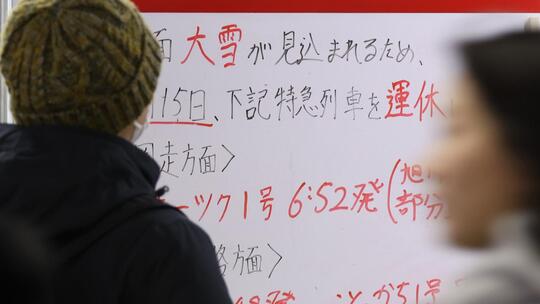 面 大雪が見込まれるため、
15日、下記特急列車を運休
走方面>
ーツク1号 6:52発(旭
部分
方面>
発 とかち1号